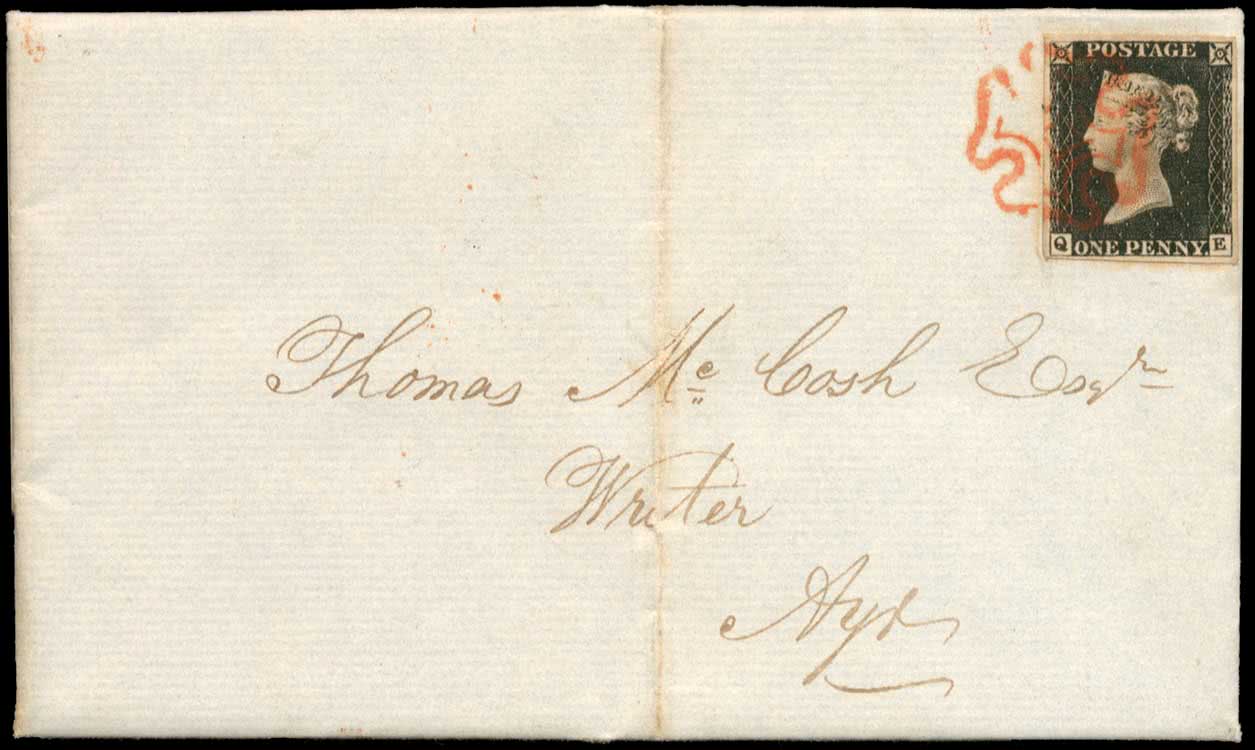 POSTAGE
Q ONE PENNY. E
Thomas Mc Cosh Esqr
Writer
Ayr